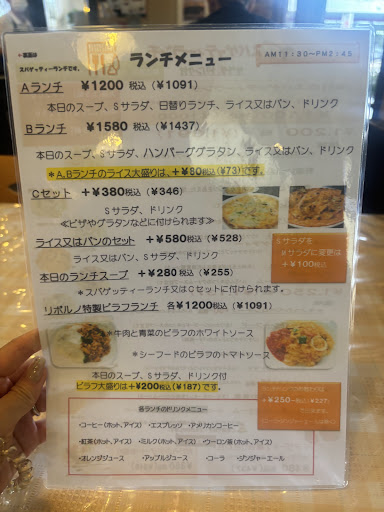 ランチメニュー
スパゲッティーランチです。
AM11:30~PM2:45
Aランチ ¥1200 税込 (¥1091)
本日のスープ、Sサラダ、日替りランチ、ライス又はパン、ドリンク
Bランチ ¥1580 税込 (¥1437)
本日のスープ、Sサラダ、ハンバーググラタン、ライス又はパン、ドリンク
*A,Bランチのライス大盛りは、+¥80税込(¥73)です。
Cセット +¥380税込 (¥346)
Sサラダ、ドリンク
≪ピザやグラタンなどに付けられます≫
ライス又はパンのセット +¥580税込 (¥528)
ライス又はパン、Sサラダ、ドリンク
Sサラダを
Mサラダに変更は
+¥100税込
本日のランチスープ +¥280税込 (¥255)
*スパゲッティーランチ又はCセットに付けられます。
リボルノ特製ピラフランチ 各¥1200税込 (¥1091)
*牛肉と青菜のピラフのホワイトソース
*シーフードのピラフのトマトソース
本日のスープ、Sサラダ、ドリンク付
ピラフ大盛りは+¥200税込(¥187)です。
+¥250税込(¥227)
各ランチのドリンクメニュー
・コーヒー(ホット、アイス) ・エスプレッソ ・アメリカンコーヒー
・紅茶(ホット、アイス) ・ミルク(ホット、アイス) ・ウーロン茶(ホット、アイス)
・オレンジジュース ・アップルジュース ・コーラ ・ジンジャーエール